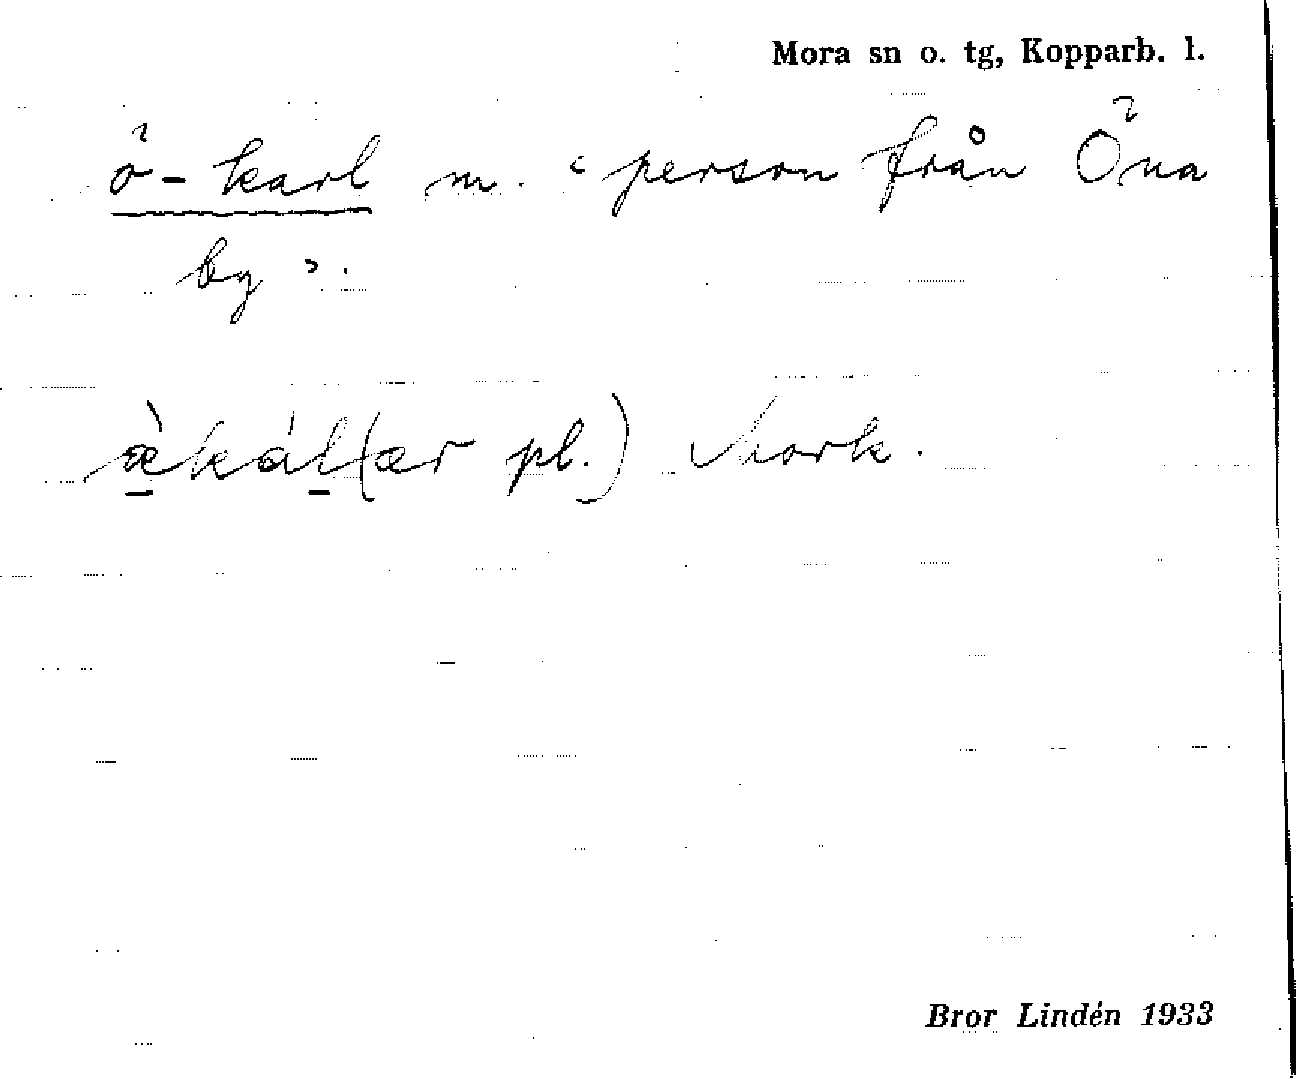 Mora sn o. tg, Kopparb. l.
ö-karl m. ‘person från Öna
by’.
œ̀kál(ær pl.) Nork.
Bror Lindén 1933